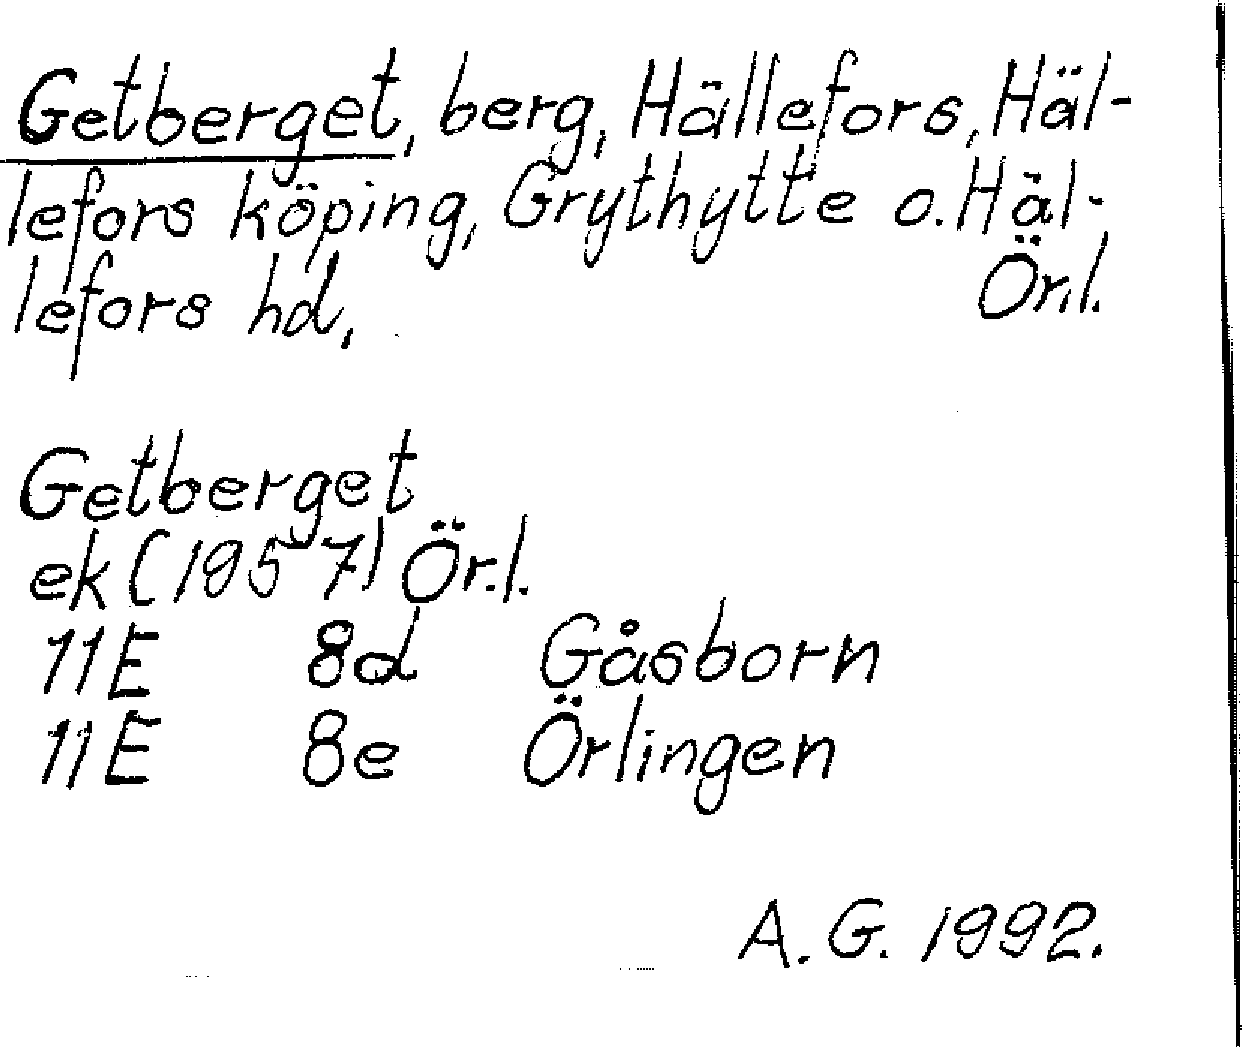 Getberget, berg, Hällefors, Häl-
lefors köping, Grythytte o. Häl-
lefors hd. Ör.l.
Getberget
ek (1957) Ör.l.
11E 8d Gåsborn
11E 8e Örlingen
A. G. 1992.